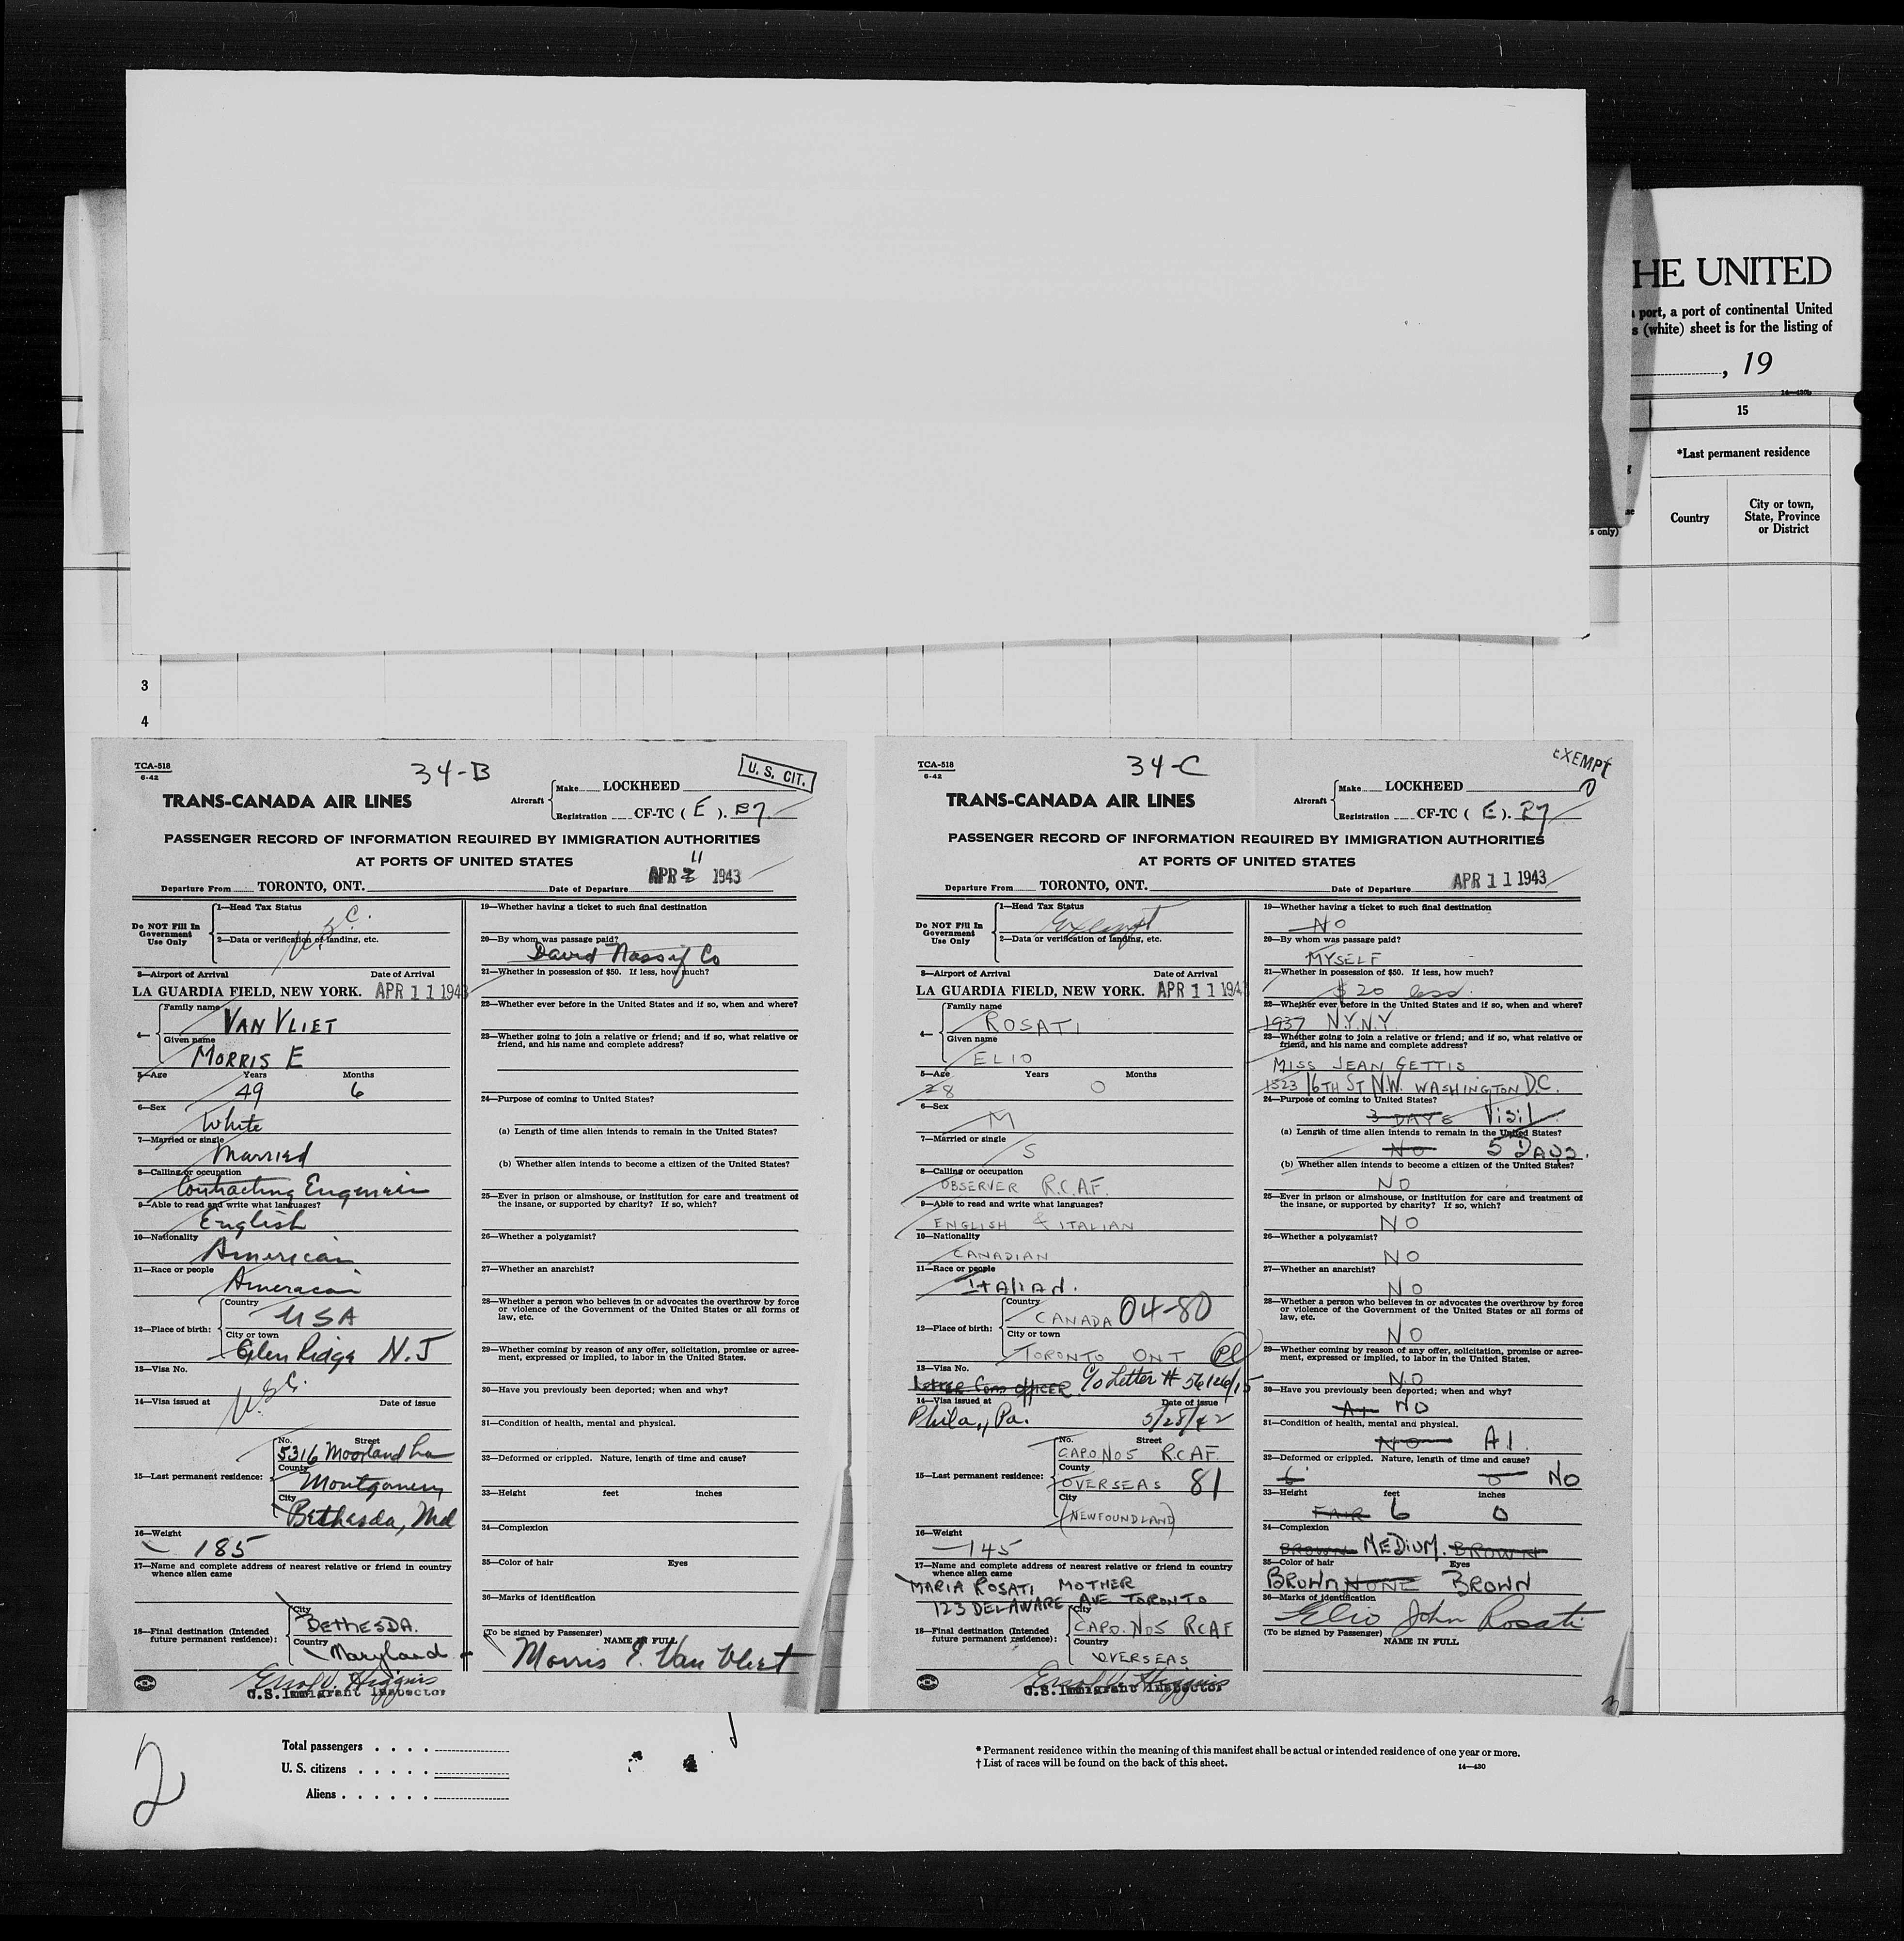 HE UNITED
port, a port of continental United
s (white) sheet is for the listing of
, 19
14—430b
15
*Last permanent residence
s only)
Country
City or town,
State, Province
or District
3
4
TCA-518
6-42
34-B
U. S. CIT.
TRANS-CANADA AIR LINES
Aircraft
Make LOCKHEED
Registration CF-TC ( E ). P7
PASSENGER RECORD OF INFORMATION REQUIRED BY IMMIGRATION AUTHORITIES
AT PORTS OF UNITED STATES
Departure From TORONTO, ONT.
Date of Departure APR 11 1943
Do NOT Fill In
Government
Use Only
1—Head Tax Status
U.S.C.
2—Data or verification of landing, etc.
3—Airport of Arrival Date of Arrival
LA GUARDIA FIELD, NEW YORK. APR 11 1943
4—
Family name
VAN VLIET
Given name
MORRIS E
5—Age Years Months
49 6
6—Sex
White
7—Married or single
Married
8—Calling or occupation
Contracting Engineer
9—Able to read and write what languages?
English
10—Nationality
American
11—Race or people
American
12—Place of birth:
Country
USA
City or town
Glen Ridge N.J
13—Visa No.
U.S.C.
14—Visa issued at Date of issue
15—Last permanent residence:
No. Street
5316 Moorland La
County
Montgomery
City
Bethesda, Md
16—Weight
185
17—Name and complete address of nearest relative or friend in country
whence alien came
18—Final destination (Intended
future permanent residence):
City
BETHESDA.
Country
Maryland
U.S. Immigrant Inspector
19—Whether having a ticket to such final destination
20—By whom was passage paid?
David Nassif Co
21—Whether in possession of $50. If less, how much?
22—Whether ever before in the United States and if so, when and where?
23—Whether going to join a relative or friend; and if so, what relative or
friend, and his name and complete address?
24—Purpose of coming to United States?
(a) Length of time alien intends to remain in the United States?
(b) Whether alien intends to become a citizen of the United States?
25—Ever in prison or almshouse, or institution for care and treatment of
the insane, or supported by charity? If so, which?
26—Whether a polygamist?
27—Whether an anarchist?
28—Whether a person who believes in or advocates the overthrow by force
or violence of the Government of the United States or all forms of
law, etc.
29—Whether coming by reason of any offer, solicitation, promise or agree-
ment, expressed or implied, to labor in the United States.
30—Have you previously been deported; when and why?
31—Condition of health, mental and physical.
32—Deformed or crippled. Nature, length of time and cause?
33—Height feet inches
34—Complexion
35—Color of hair Eyes
36—Marks of identification
(To be signed by Passenger)
NAME IN FULL
Morris E. Van Vliet
TCA-518
6-42
34-C
EXEMPT
TRANS-CANADA AIR LINES
Aircraft
Make LOCKHEED
Registration CF-TC ( E ). P7
PASSENGER RECORD OF INFORMATION REQUIRED BY IMMIGRATION AUTHORITIES
AT PORTS OF UNITED STATES
Departure From TORONTO, ONT.
Date of Departure APR 11 1943
Do NOT Fill In
Government
Use Only
1—Head Tax Status
Exempt
2—Data or verification of landing, etc.
3—Airport of Arrival Date of Arrival
LA GUARDIA FIELD, NEW YORK. APR 11 194
4—
Family name
ROSATI
Given name
ELIO
5—Age Years Months
28 0
6—Sex
M
7—Married or single
S
8—Calling or occupation
OBSERVER R.C.A.F.
9—Able to read and write what languages?
ENGLISH & ITALIAN
10—Nationality
CANADIAN
11—Race or people
ITALIAN.
12—Place of birth:
Country
CANADA 04-80
City or town
TORONTO ONT
13—Visa No.
LETTER COMD OFFICER C/o Letter # 56126/15
14—Visa issued at Date of issue
Phila., Pa. 5/28/42
15—Last permanent residence:
No. Street
CAPO NO5 RCAF
County
OVERSEAS 81
City
(NEWFOUNDLAND)
16—Weight
145
17—Name and complete address of nearest relative or friend in country
whence alien came
MARIA ROSATI MOTHER
123 DELAWARE AVE TORONTO
18—Final destination (Intended
future permanent residence):
City
CAPO. NO5 RCAF
Country
OVERSEAS
U.S. Immigrant Inspector
19—Whether having a ticket to such final destination
NO
20—By whom was passage paid?
MYSELF
21—Whether in possession of $50. If less, how much?
$20 less.
22—Whether ever before in the United States and if so, when and where?
1937 N.Y.N.Y
23—Whether going to join a relative or friend; and if so, what relative or
friend, and his name and complete address?
MISS JEAN GETTIS
1523 16TH ST N.W. WASHINGTON D.C.
24—Purpose of coming to United States?
3 DAYS Visit
(a) Length of time alien intends to remain in the United States?
NO 5 DAYS.
(b) Whether alien intends to become a citizen of the United States?
NO
25—Ever in prison or almshouse, or institution for care and treatment of
the insane, or supported by charity? If so, which?
NO
26—Whether a polygamist?
NO
27—Whether an anarchist?
NO
28—Whether a person who believes in or advocates the overthrow by force
or violence of the Government of the United States or all forms of
law, etc.
NO
29—Whether coming by reason of any offer, solicitation, promise or agree-
ment, expressed or implied, to labor in the United States.
NO
30—Have you previously been deported; when and why?
A1 NO
31—Condition of health, mental and physical.
NO A1.
32—Deformed or crippled. Nature, length of time and cause?
6 0 NO
33—Height feet inches
FAIR 6 0
34—Complexion
BROWN MEDIUM. BROWN
35—Color of hair Eyes
BROWN NONE BROWN
36—Marks of identification
Elio John Rosati
(To be signed by Passenger)
NAME IN FULL
2
Total passengers . . . .
U. S. citizens . . . . .
Aliens . . . . . .
* Permanent residence within the meaning of this manifest shall be actual or intended residence of one year or more.
† List of races will be found on the back of this sheet.
14—430